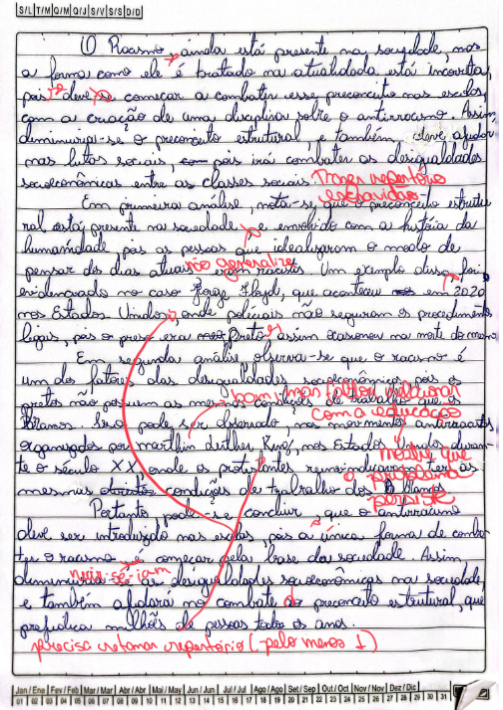 S/L T/M Q/M Q/J S/V S/S D/D
O Racismo, ainda está presente na sociedade, mas
a forma como ele é tratado na atualidade está incorreta,
pois deve se começar a combater esse preconceito nas escolas,
com a criação de uma disciplina sobre o antirracismo. Assim,
diminuiria-se o preconceito estrutural, e também deve ajudar
nas lutas sociais, pois irá combater as desigualdades
socioeconômicas entre as classes sociais. Trazer repertório
escravidão
Em primeira análise, nota-se que o preconceito estrutu
ral está presente na sociedade e envolvido com a história da
humanidade, pois as pessoas que idealizaram o modo de
pensar dos dias atuais eram racistas. Um exemplo disso, foi
não generalize
evidenciado no caso Jorge Floyd, que aconteceu em 2020
nos Estados Unidos, onde policiais não seguiram os procedimentos
legais, pois o preso era preto, assim ocasionou na morte do mesmo
Em segunda análise observa-se que o racismo é
um dos fatores das desigualdades socioeconômicas, pois os
pretos não possuem as mesmas condições de trabalho que os
bom, mas faltou relacionar
com a educação
brancos. Isso pode ser observado, nos movimentos antirracistas
organizados por Marthin Luther King, nos Estados Unidos duran-
te o século XX, onde os protestantes reinsindicavam ter as
mostre que
o problema
persiste
mesmas condições de trabalho dos Brancos
Portanto, pode-se concluir, que o antirracismo
deve ser introduzido nas escolas, pois a única forma de comba
ter o racismo é começar pela base da sociedade. Assim
diminuiria as desigualdades socioeconômicas na sociedade
e também ajudará no combate ao preconceito estrutural, que
prejudica milhões de pessoas todos os anos.
precisa retomar repertório (pelo menos 1)
Jan / Ene Fev / Feb Mar / Mar Abr / Abr Mai / May Jun / Jun Jul / Jul Ago / Ago Set / Sep Out / Oct Nov / Nov Dez / Dic
01 02 03 04 05 06 07 08 09 10 11 12 13 14 15 16 17 18 19 20 21 22 23 24 25 26 27 28 29 30 31